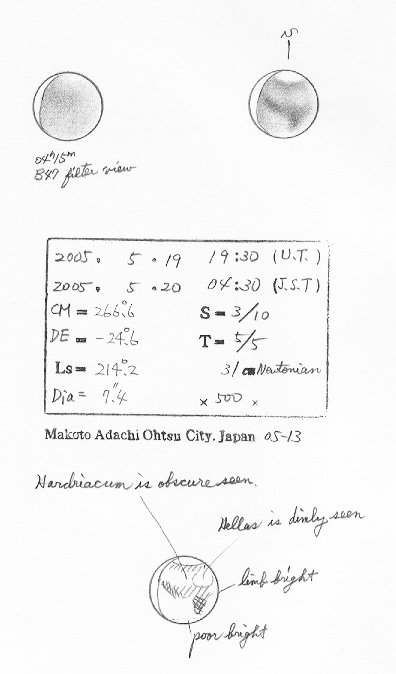 S
04ʰ15ᵐ
B47 filter view
2005. 5.19 19:30 (U.T.)
2005. 5.20 04:30 (J.S.T)
CM = 266.°6 S = 3/10
DE = -24.°6 T = 5/5
Ls = 214.°2 31cm Newtonian
Dia = 7.″4 × 500 ×
Makoto Adachi Ohtsu City. Japan 05-13
Hardriacum is obscure seen.
Hellas is dimly seen
limb bright
poor bright